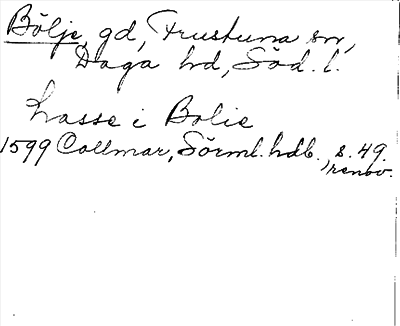 Bölje, gd, Frustuna sn,
Daga hd, Söd. l.
Lasse i Bolie
1599 Collmar, Sörml. hdl., s. 49.
renov.